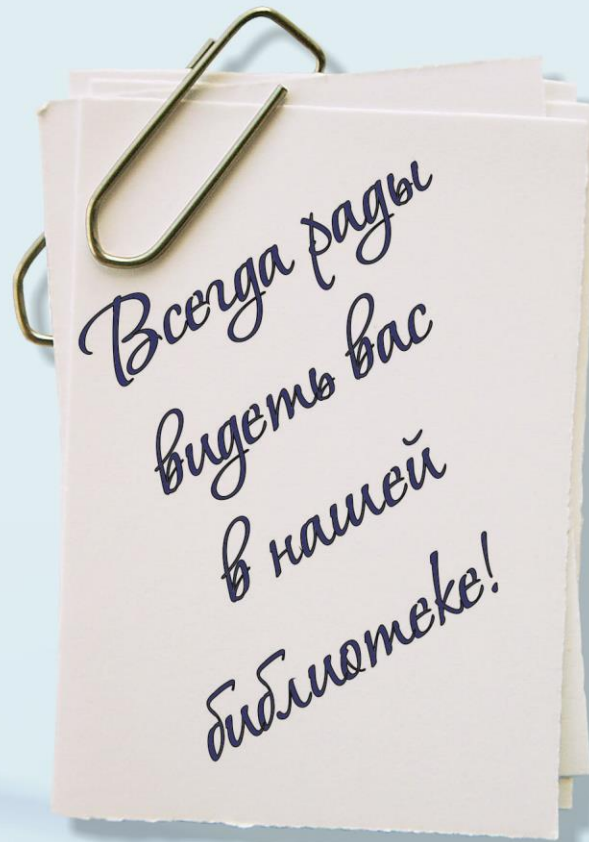 Всегда рады
видеть вас
в нашей
библиотеке!